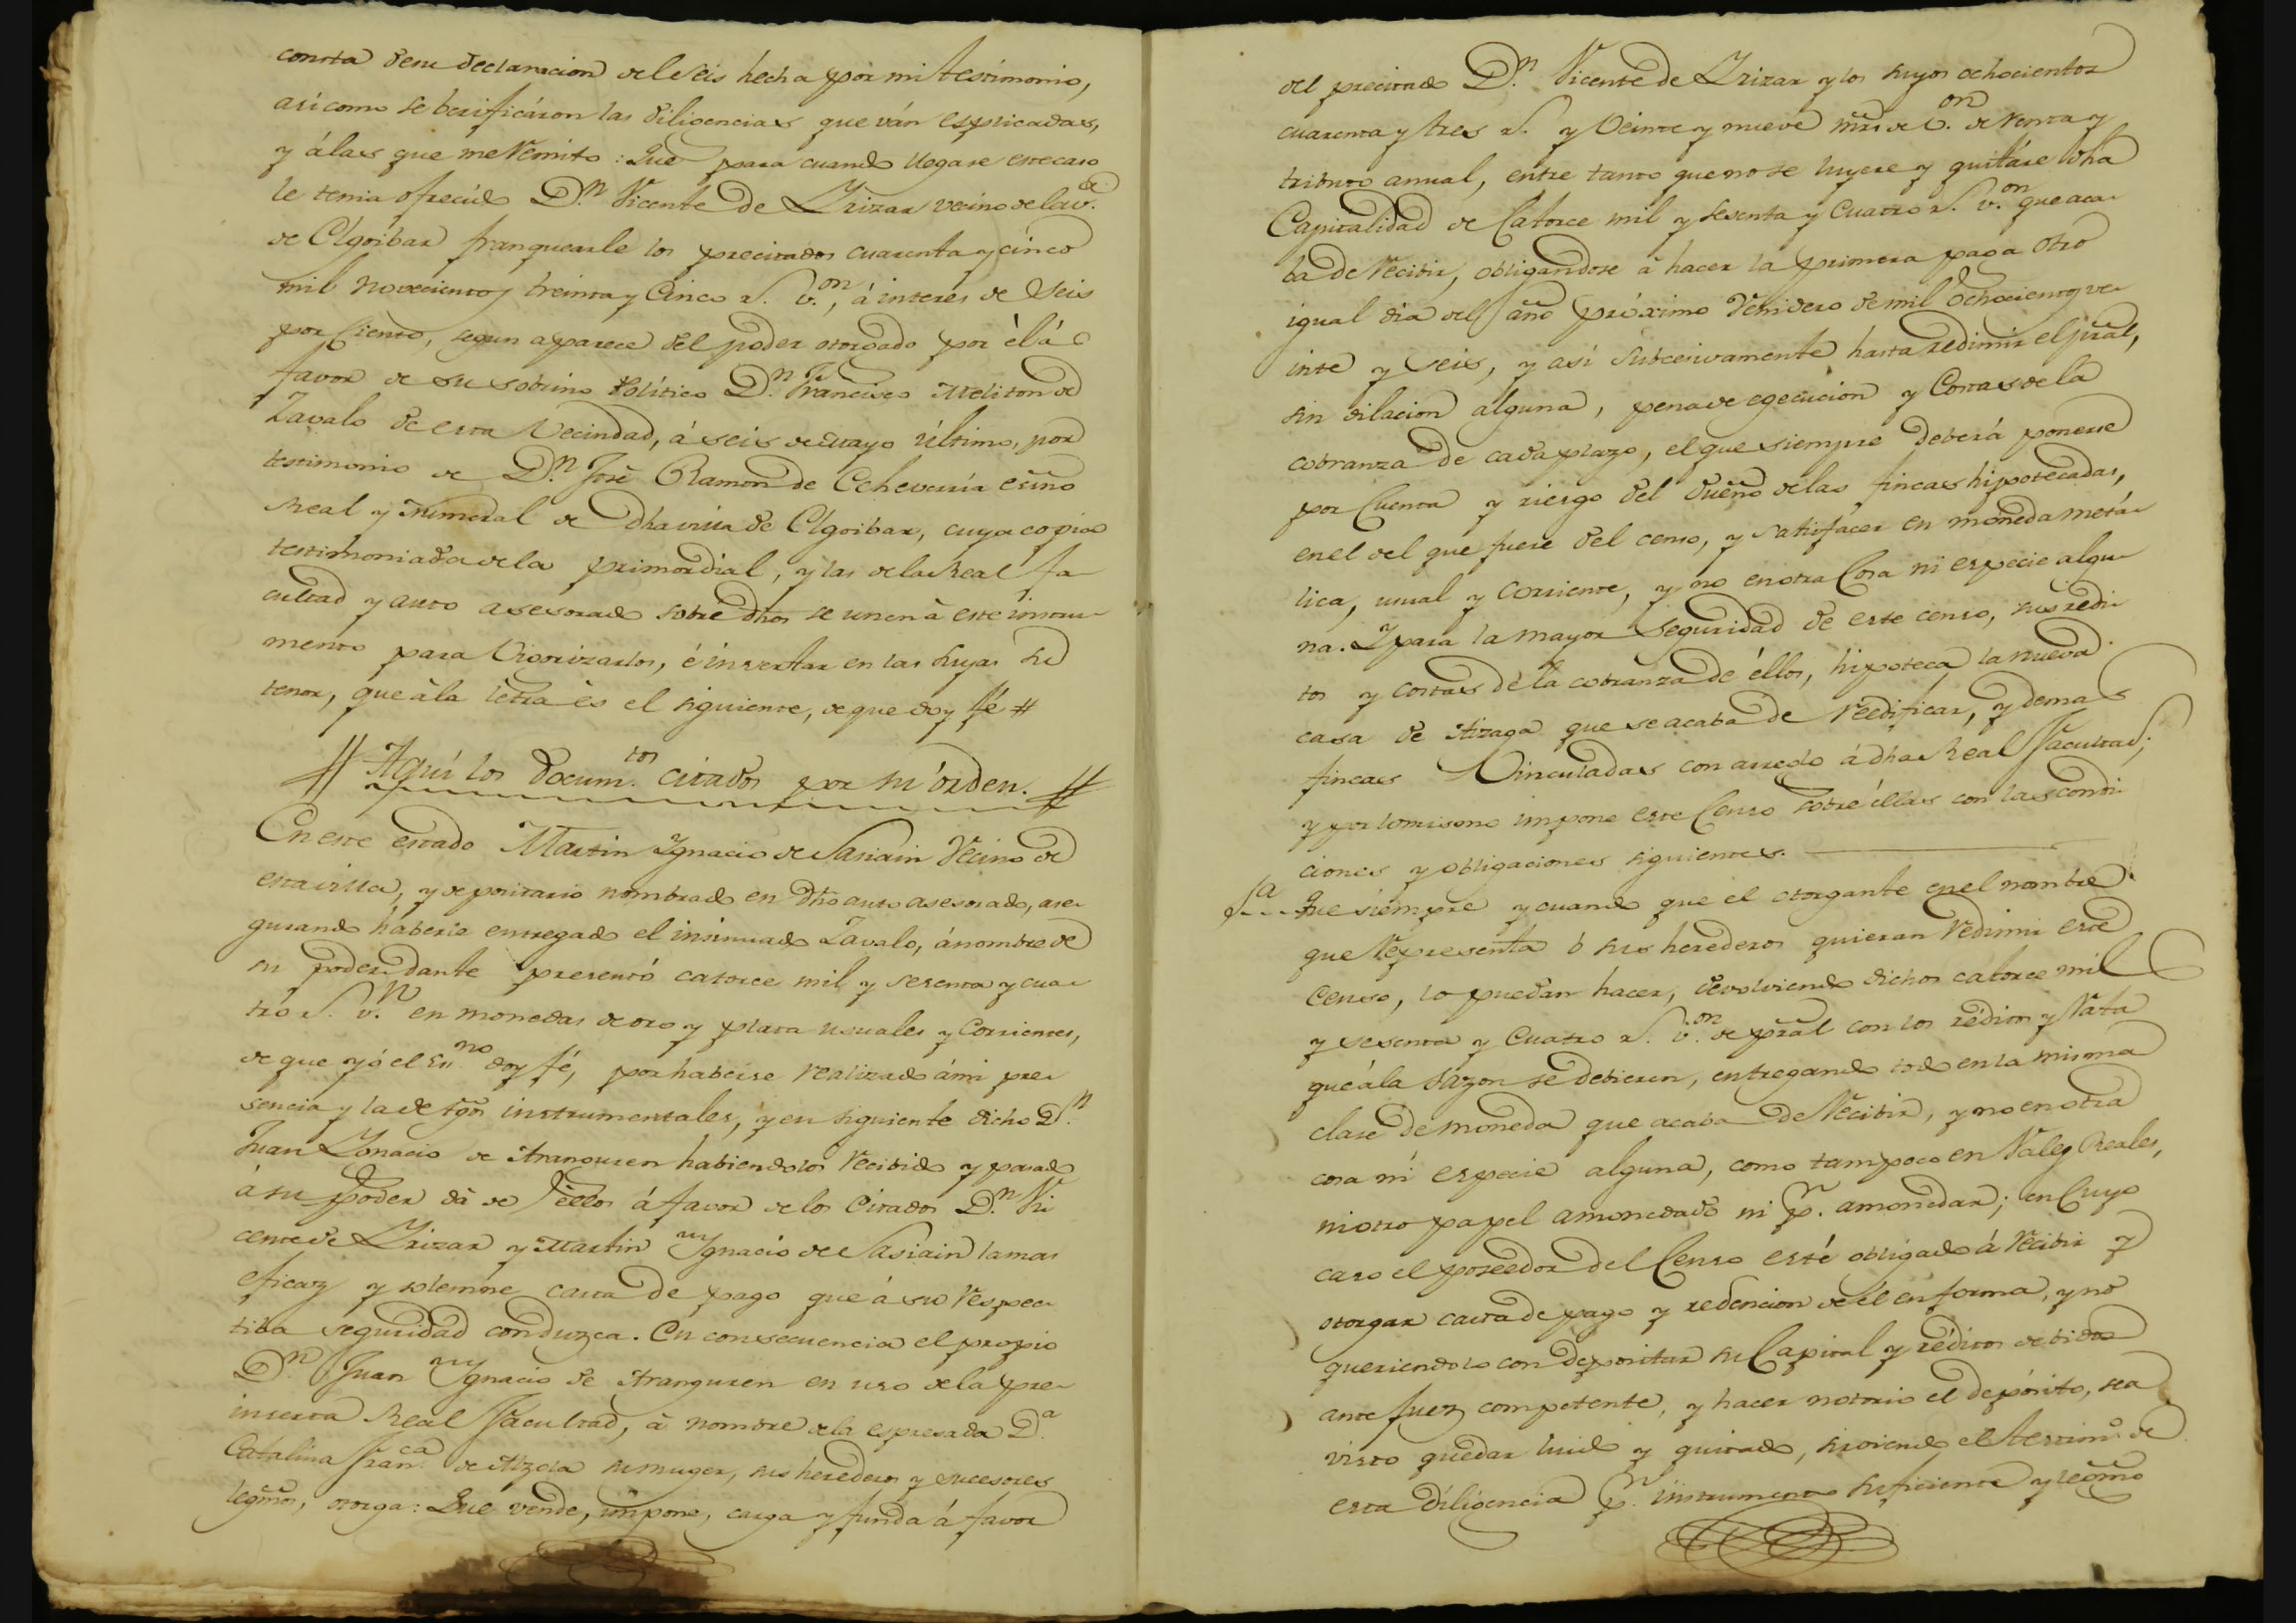 consta de su declaracion del seis hecha por mi testimonio,
asi como se berificáron las diligencias que ván esplicadas,
y á las que me remito: Que para cuando llegare este caso
le tenia ofrecido D.n Vicente de Yrizar vecino de la v.a
de Elgoibar franquearle los precitados cuarenta y cinco
mil novecientos treinta y cinco r.s v.on, á interes de seis
por ciento, segun aparece del poder otorgado por él á
favor de su sobrino político D.n Francisco Meliton de
Zavalo de esta vecindad, á seis de Mayo último, por
testimonio de D.n José Ramon de Echeverria esño
Real y Numeral de dha villa de Elgoibar, cuya copia
testimoniada de la primordial, y las de la Real fa-
cultad y auto asesorado sobre dhos se unen à este instru-
mento para vigorizarlos, é insertar en las suyas su
tenor, que à la letra es el siguiente, de que doy fé #
# Aquí los docum.tos citados por su órden. #
En este estado Martin Ygnacio de Sasiain vecino de
esta villa, y depositario nombrado en dho auto asesorado, ase-
gurando haberle entregado el insinuado Zavalo, á nombre de
su poderdante presentó catorce mil y sesenta y cua-
tro r.s v.n en monedas de oro y plata usuales y corrientes,
de que yó el es.no doy fé, por haberse realizado á mi pre-
sencia y la de tgos instrumentales, y en siguiente dicho D.n
Juan Ygnacio de Aranguren habiendolos recibido y pasado
á su poder dà de ellos á favor de los citados D.n Vi
cente de Yrizar y Martin Ygnacio de Sasiain la mas
eficaz y solemne carta de pago que á su respec-
tiba seguridad conduzca. En consecuencia el propio
D.n Juan Ygnacio de Aranguren en uso de la pre-
inserta Real Facultad, à nombre de la espresada D.a
Catalina Fran.ca de Aizaga su muger, sus herederos y sucesores
legmos, otorga: Que vende, impone, carga y funda á favor
del precitado D.n Vicente de Yrizar y los suyos ochocientos
cuarenta y tres r.s y veinte y nueve mrs de v.on de renta y
tributo annual, entre tanto que no se luyere y quitáre dha
Capitalidad de Catorce mil y sesenta y cuatro r.s v.on que aca-
ba de recibir, obligandose à hacer la primera paga otro
igual dia del año próximo venidero de mil ochocientos ve-
inte y seis, y asi subcesivamente hasta redimir el pral,
sin dilacion alguna, pena de egecucion y costas de la
cobranza de cada plazo, el que siempre deberá ponerse
por cuenta y riesgo del dueño de las fincas hipotecadas,
en el del que fuese del censo, y satisfacer en moneda metá-
lica, usual y corriente, y no en otra cosa ni especie algu-
na. Y para la mayor seguridad de este censo, sus rédi-
tos y costas de la cobranza de éllos, hipoteca la nueva
casa de Aizaga que se acaba de reedificar, y demas
fincas vinculadas con arreglo á dha Real Facultad;
y por lo mismo impone este Censo sobre éllas con las condi-
ciones y obligaciones siguientes.
1.a Que siempre y cuando que el otorgante en el nombre
que representa ó sus herederos quieran redimir este
Censo, lo puedan hacer, devolviendo dichos catorce mil
y sesenta y cuatro r.s v.on de pral con los réditos y rata
que á la sazon se debieren, entregando todo en la misma
clase de moneda que acaba de recibir, y no en otra
cosa ni especie alguna, como tampoco en Vales Reales,
ni otro papel amonedado ni p.r amonedar; en cuyo
caso el poseedor del Censo esté obligado á recibir y
otorgar carta de pago y redencion de él en forma, y no
queriendolo con depositar su Capital y réditos debidos
ante Juez competente, y hacer notorio el depósito, sea
visto quedar luido y quitado, sirviendo el testimo de
esta diligencia p.r instrumento suficiente y legmo